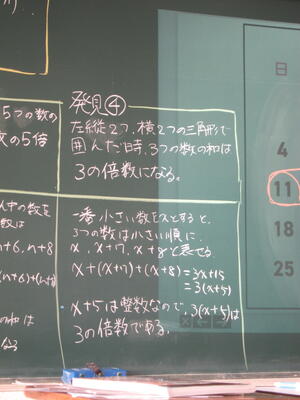 5つの数の
の5倍
発見④
左縦2つ、横2つの三角形で
囲んだ時、3つの数の和は
3の倍数になる。
中の数を
は
n+6, n+8
一番小さい数をxとすると、
3つの数は小さい順に、
x, x+7, x+8と表せる。
x+(x+7)+(x+8)=3x+15
=3(x+5)
x+5は整数なので、3(x+5)は
3の倍数である。
の和は
なる
日
4
11
18
25